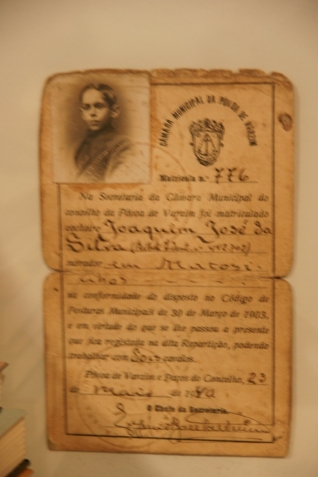 CÂMARA MUNICIPAL DA POVOA DE VARZIM
Matricula n.º 776
Na Secretaria da Câmara Municipal do
concelho da Póvoa de Varzim foi matriculado
cocheiro Joaquim José da
Silva
morador em Matosi-
nhos
na conformidade do disposto no Código de
Posturas Municipais de 30 de Março de 1903,
e em virtude do que se lhe passou a presente
que fica registada na dita Repartição, podendo
trabalhar com Dois cavalos.
Póvoa de Varzim e Paços do Concelho, 23
de Março de
O Chefe da Secretaria,